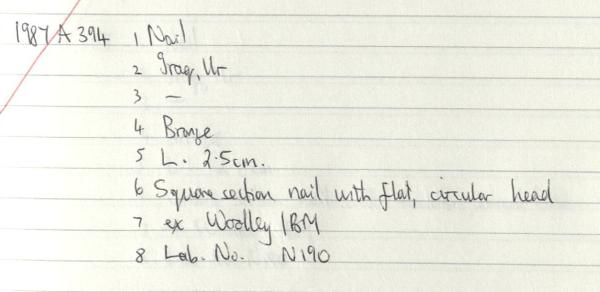 1987 A 394 1 Nail
2 Iraq, Ur
3 —
4 Bronze
5 L. 2.5cm.
6 Square section nail with flat, circular head
7 ex Woolley / BM
8 Lab. No. N190